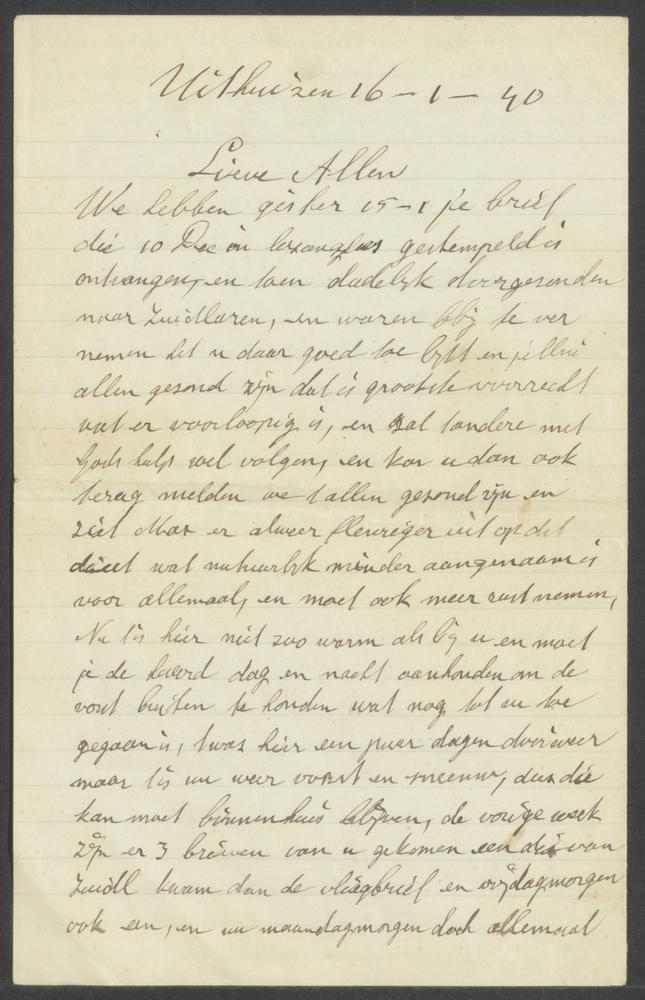 Uithuizen 16 – 1 – 40
Lieve Allen
We hebben gister 15-1 je brief
die 10 Dec in gestempeld is
ontvangen, en toen dadelyk doorgesonden
naar Zuidlaren, en waren blij te ver
nemen dat u daar goed toe en jellui
allen gesond zijn dat is grootste voorrecht
wat er voorloopig is, en zal tandere met
Gods hulp wel volgen, en kan u dan ook
terug melden we tallen gesond zijn en
ziet er alweer fleuriger uit op dat
dieet wat natuurlyk minder aangenaam is
voor allemaal, en moet ook meer rust nemen,
Nu tis hier niet zoo warm als bij u en moet
je de haard dag en nacht aanhouden om de
vorst buiten te houden wat nog tot nu toe
gegaan is, twas hier een paar dagen dooiweer
maar tis nu weer vorst en sneeuw, dus die
kan moet binnenhuis blijven, de vorige week
zijn er 3 brieven van u gekomen een van
Zuidl kwam dan de vliegbrief en vrijdagmorgen
ook een, en nu maandagmorgen doch allemaal